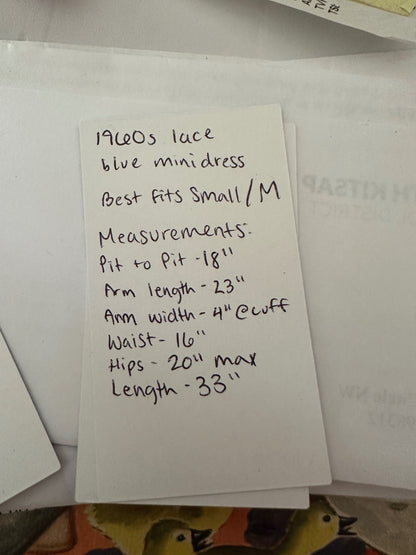 1960s lace
blue minidress
Best Fits Small/M
Measurements:
Pit to Pit - 18"
Arm length - 23"
Arm width - 4" @ cuff
Waist - 16"
Hips - 20" max
Length - 33"
TH KITSAP
DISTRICT
98312